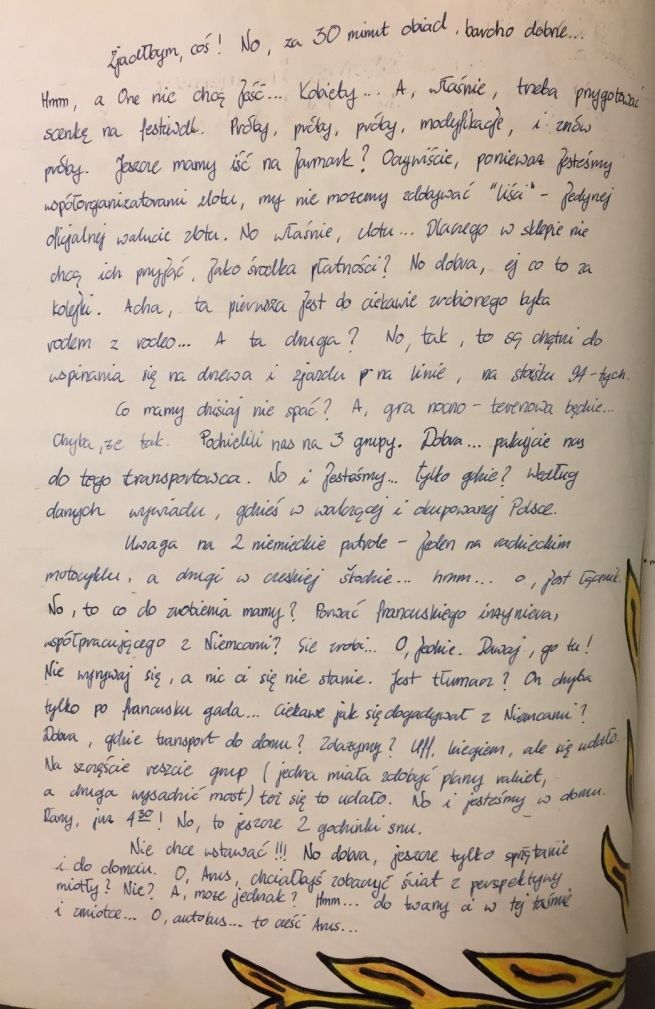 Zjadłbym, coś! No, za 30 minut obiad, bardzo dobrze...
Hmm, a One nie chcą jeść... Kobiety... A, właśnie, trzeba przygotować
scenkę na festiwal. Próby, próby, próby, modyfikacje, i znów
próby. Jeszcze mamy iść na jarmark? Oczywiście, ponieważ jesteśmy
współorganizatorami zlotu, my nie możemy zdobywać "liści" - jedynej
oficjalnej walucie zlotu. No właśnie, zlotu... Dlaczego w sklepie nie
chcą ich przyjąć, jako środka płatności? No dobra, ej co to za
kolejki. Acha, ta pierwsza jest do ciekawie zrobionego byka
rodem z rodeo... A ta druga? No, tak, to są chętni do
wspinania się na drzewa i zjazdu na linie, na stoisku 94-tych.
Co mamy dzisiaj nie spać? A, gra nocno - terenowa będzie...
Chyba, że tak. Podzielili nas na 3 grupy. Dobra... pakujcie nas
do tego transportowca. No i jesteśmy... tylko gdzie? Według
danych wywiadu, gdzieś w walczącej i okupowanej Polsce.
Uwaga na 2 niemieckie patrole - jeden na radzieckim
motocyklu, a drugi w czeskiej Skodzie... hmm... o, jest łącznik.
No, to co do zrobienia mamy? Porwać francuskiego inżyniera,
współpracującego z Niemcami? Się zrobi... O, jedzie. Dawaj, go tu!
Nie wyrywaj się, a nic ci się nie stanie. Jest tłumacz? On chyba
tylko po francusku gada... Ciekawe jak się dogadywał z Niemcami?
Dobra, gdzie transport do domu? Zdążymy? Uff, biegiem, ale się udało.
Na szczęście reszcie grup (jedna miała zdobyć plany rakiet,
a druga wysadzić most) też się to udało. No i jesteśmy w domu.
Rany, już 4:30! No, to jeszcze 2 godzinki snu.
Nie chce wstawać!!! No dobra, jeszcze tylko sprzątanie
i do domciu. O, Arus, chciałbyś zobaczyć świat z perspektywy
miotły? Nie? A, może jednak? Hmm... do twarzy ci w tej taśmie
i zmiotce... O, autobus... to cześć Arus...